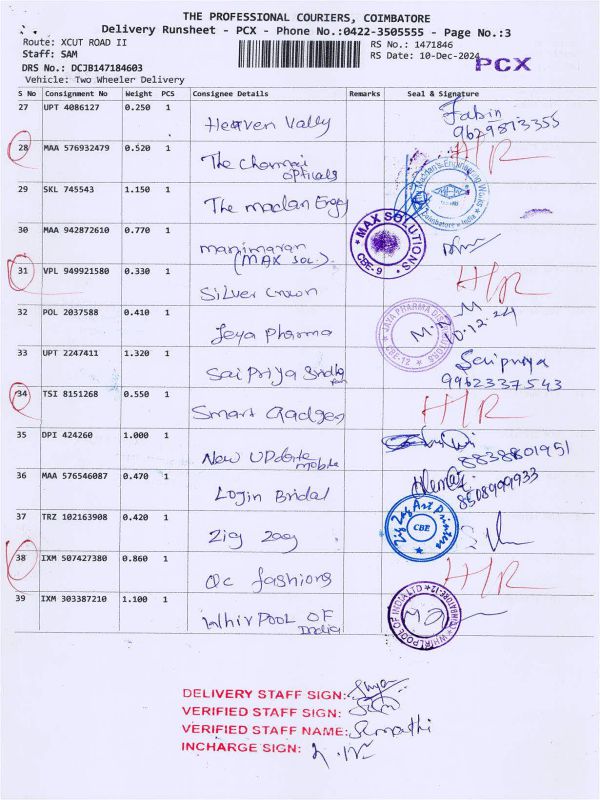 THE PROFESSIONAL COURIERS, COIMBATORE
Delivery Runsheet - PCX - Phone No.:0422-3505555 - Page No.:3
Route: XCUT ROAD II RS No.: 1471846
Staff: SAM RS Date: 10-Dec-2024 PCX
DRS No.: DCJB147184603
Vehicle: Two Wheeler Delivery
S No Consignment No Weight PCS Consignee Details Remarks Seal & Signature
27 UPT 4086127 0.250 1 Heaven Vally Fabin 9629813355
28 MAA 576932479 0.520 1 The Chennai opticals H/R
29 SKL 745543 1.150 1 The madan Engg Madan's Engineering Works Coimbatore India
30 MAA 942872610 0.770 1 manimaran (MAX SOL). MAX SOLUTIONS CBE-9
31 VPL 949921580 0.330 1 Silver Crown H/R
32 POL 2037588 0.410 1 Jeya Pharma JAYA PHARMA CBE-12 10.12.24
33 UPT 2247411 1.320 1 Sai Priya Sai priya 9962337543
34 TSI 8151268 0.550 1 Smart Gadges H/R
35 DPI 424260 1.000 1 New UPdate mobile 8838801951
36 MAA 576546087 0.470 1 Login Bridal 8508999933
37 TRZ 102163908 0.420 1 Zig Zag Zig Zag Art Printers CBE
38 IXM 507427380 0.860 1 Qc fashions H/R
39 IXM 303387210 1.100 1 Whirpool OF India WHIRLPOOL OF INDIA LTD COIMBATORE-12
DELIVERY STAFF SIGN:
VERIFIED STAFF SIGN:
VERIFIED STAFF NAME:
INCHARGE SIGN: